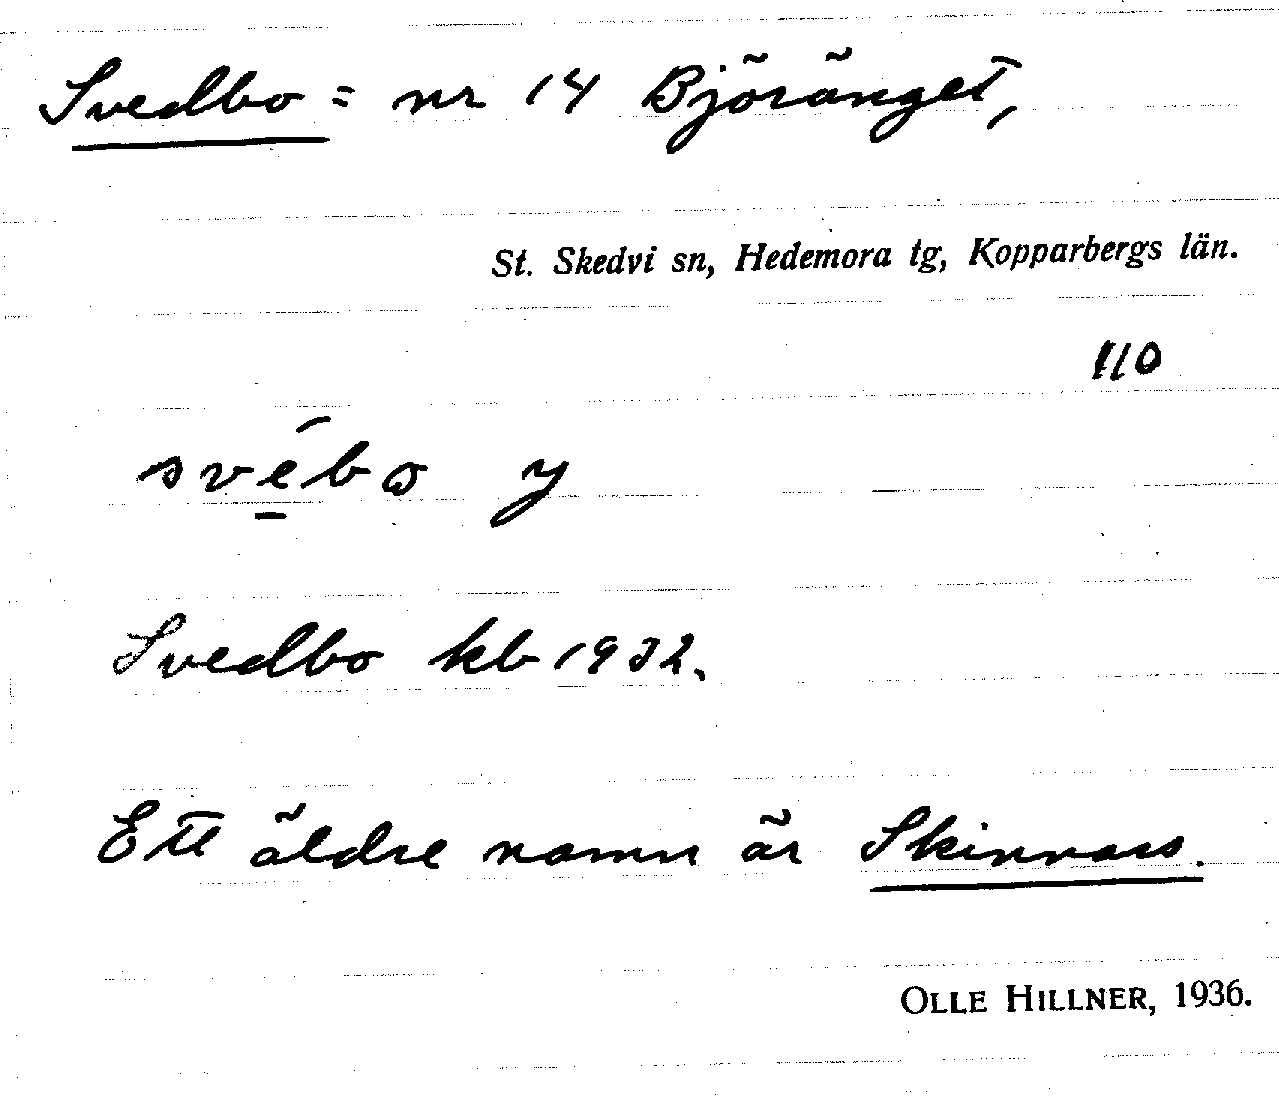 Svedbo = nr 14 Björänget,
St. Skedvi sn, Hedemora tg, Kopparbergs län.
110
svébω y
Svedbo kb 1932.
Ett äldre namn är Skinnars.
OLLE HILLNER, 1936.